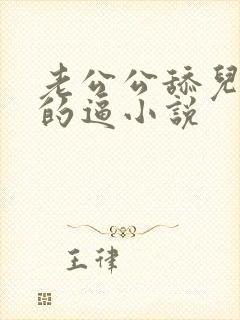 老公公舔兒
的逼小説
王律